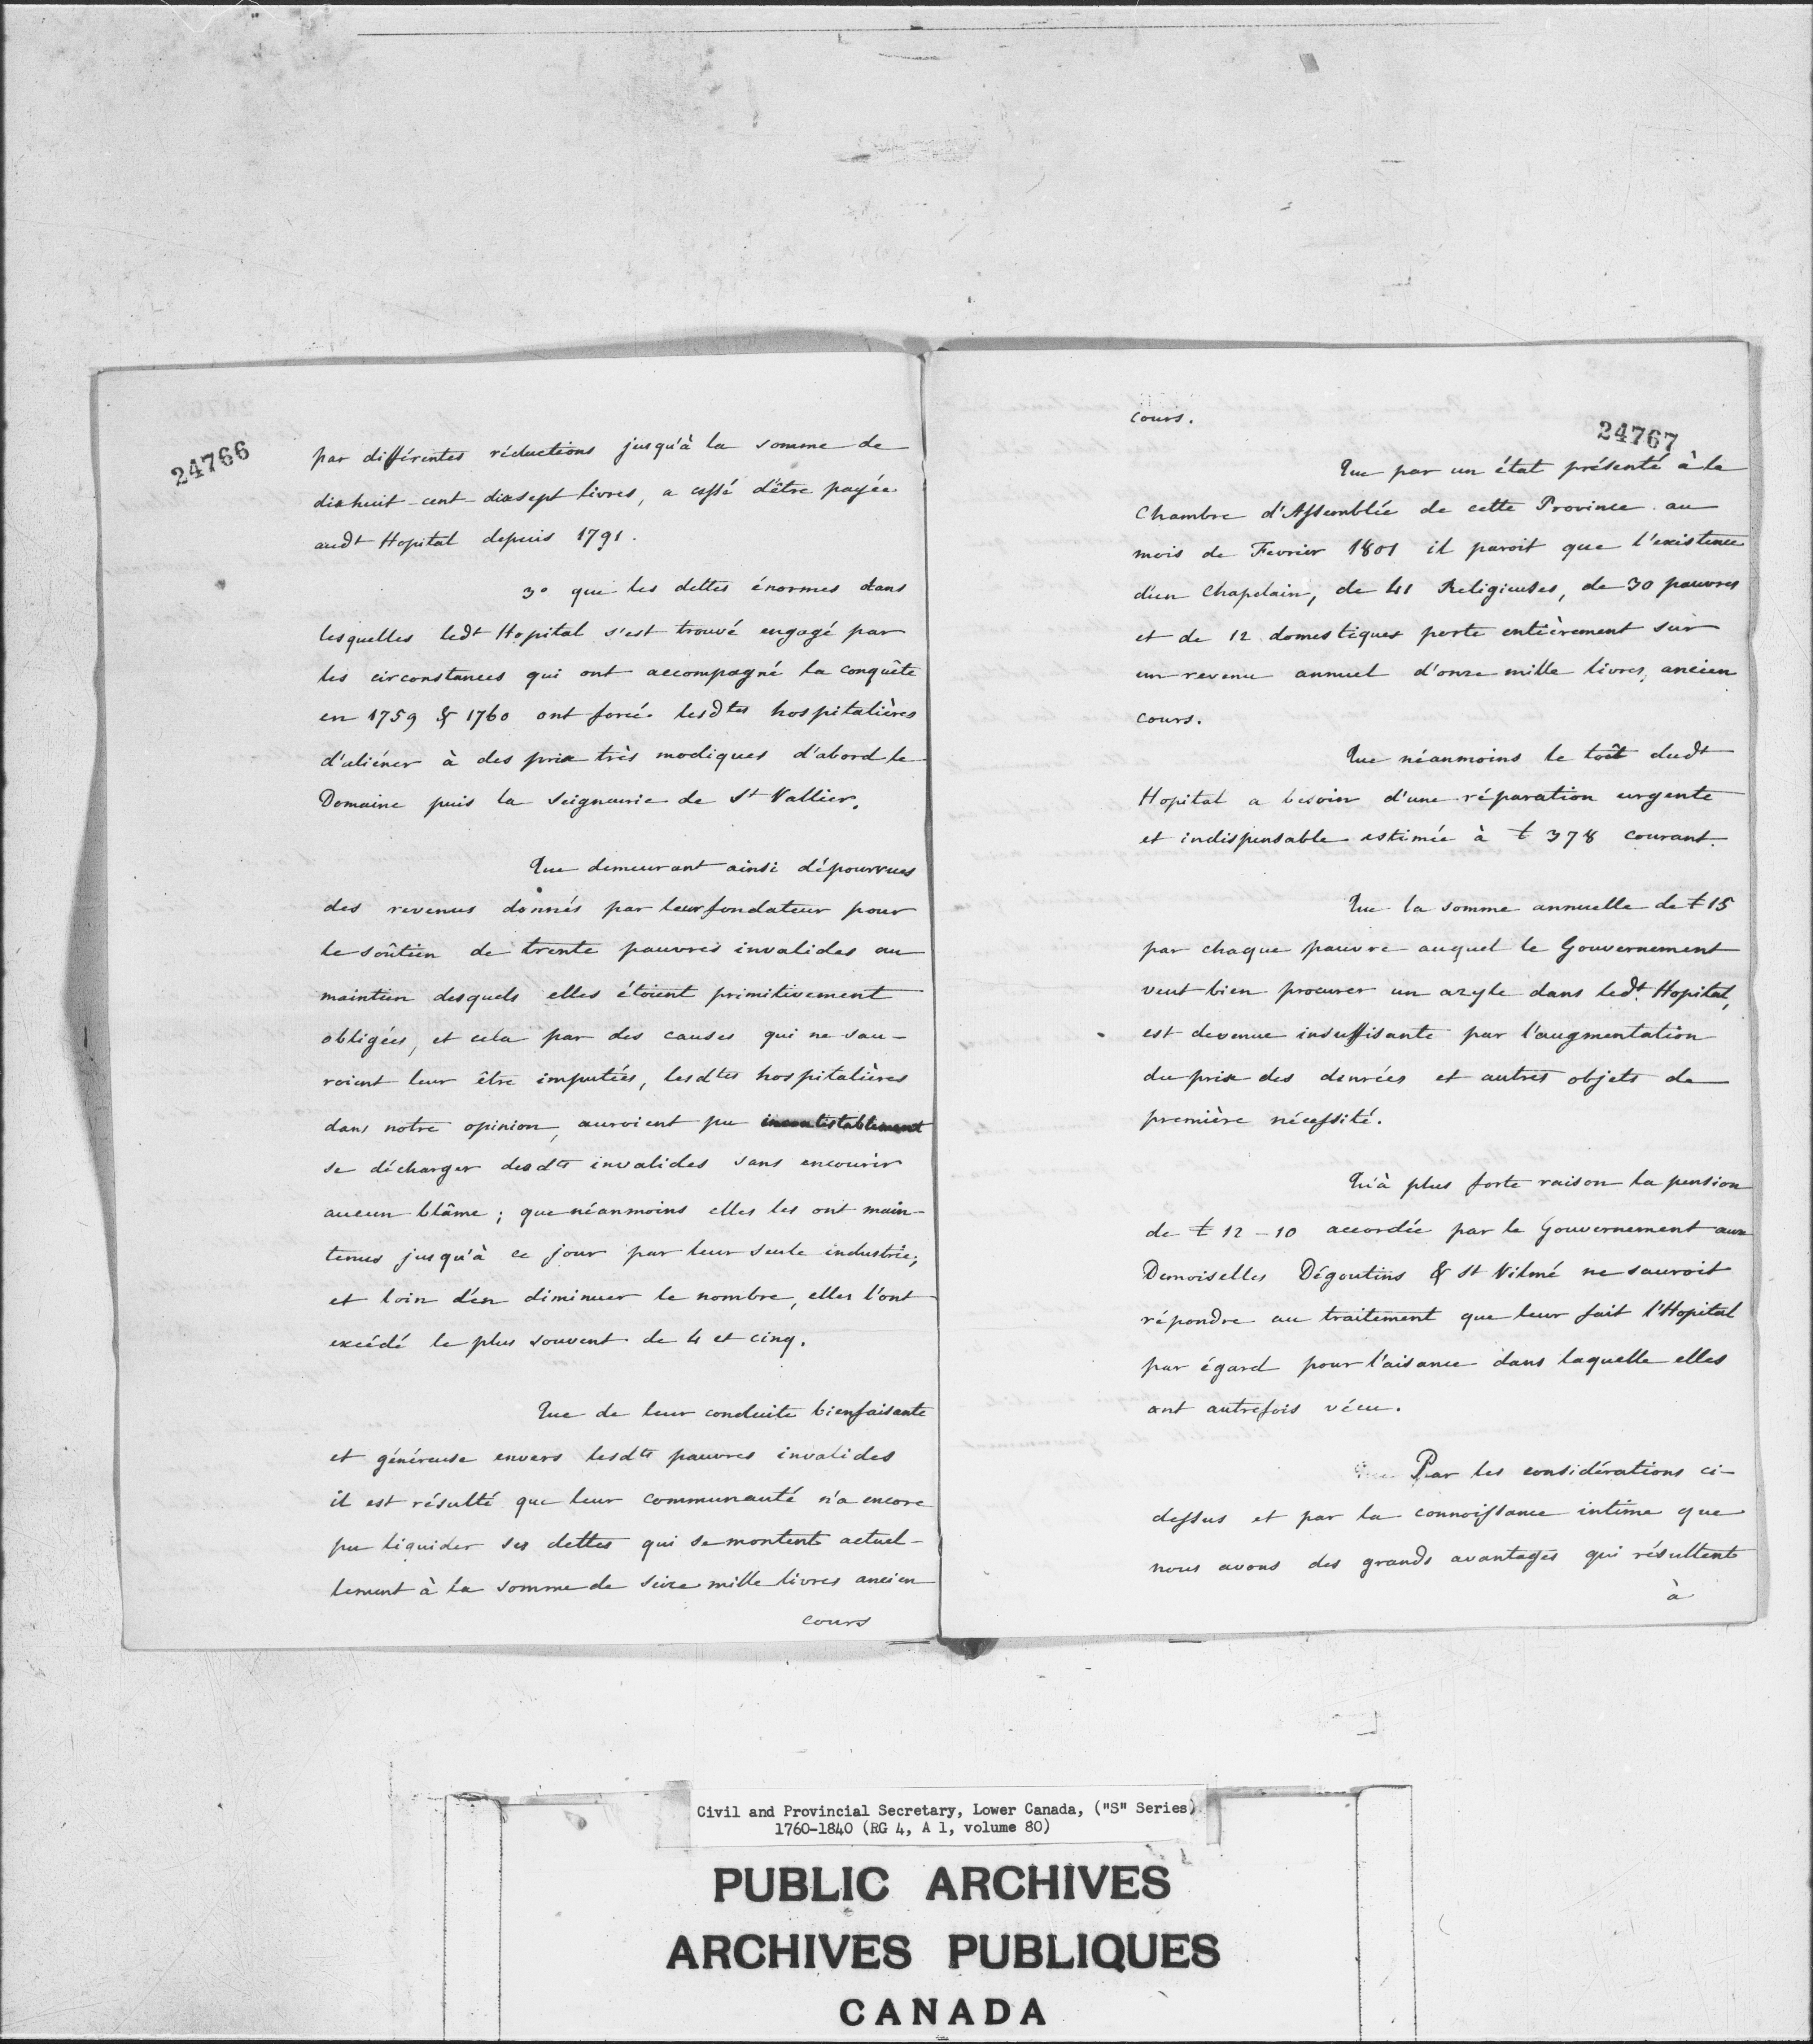 24766
par différentes réductions jusqu'à la somme de
dixhuit-cent-dixsept livres, a cessé d'être payée
audt Hopital depuis 1791.
3o que les dettes énormes dans
lesquelles ledt Hopital s'est trouvé engagé par
les circonstances qui ont accompagné la conquête
en 1759 & 1760 ont forcé lesdtes hospitalières
d'aliéner à des prix très modiques d'abord le
Domaine puis la Seigneurie de St Vallier.
Que demeurant ainsi dépourvues
des revenus donnés par leur fondateur pour
le soûtien de trente pauvres invalides au
maintien desquels elles étoient primitivement
obligées, et cela par des causes qui ne sau-
roient leur être imputées, lesdtes hospitalières
dans notre opinion, auroient pu incontestablement
se décharger desdts invalides sans encourir
aucun blâme; que néanmoins elles les ont main-
tenus jusqu'à ce jour par leur seule industrie,
et loin d'en diminuer le nombre, elles l'ont
excédé le plus souvent de 4 et cinq.
Que de leur conduite bienfaisante
et généreuse envers lesdts pauvres invalides
il est résulté que leur communauté n'a encore
pu liquider ses dettes qui se montent actuel-
lement à la somme de seize mille livres ancien
cours
cours.
24767
Que par un état présenté à la
Chambre d'Assemblée de cette Province au
mois de Fevrier 1801 il paroit que l'existence
d'un Chapelain, de 41 Religieuses, de 30 pauvres
et de 12 domestiques porte entièrement sur
un revenu annuel d'onze mille livres, ancien
cours.
Que néanmoins le toît dudt
Hopital a besoin d'une réparation urgente
et indispensable estimée à £ 378 courant.
Que la somme annuelle de £15
par chaque pauvre auquel le Gouvernement
veut bien procurer un azyle dans ledt Hopital,
est devenue insuffisante par l'augmentation
du prix des denrées et autres objets de
première nécessité.
Qu'à plus forte raison la pension
de £ 12-10 accordée par le Gouvernement aux
Demoiselles Dégoutins & St Vilmé ne sauroit
répondre au traitement que leur fait l'Hopital
par égard pour l'aisance dans laquelle elles
ont autrefois vécu.
Par les considérations ci-
dessus et par la connoissance intime que
nous avons des grands avantages qui résultent
à
Civil and Provincial Secretary, Lower Canada, ("S" Series)
1760-1840 (RG 4, A 1, volume 80)
PUBLIC ARCHIVES
ARCHIVES PUBLIQUES
CANADA